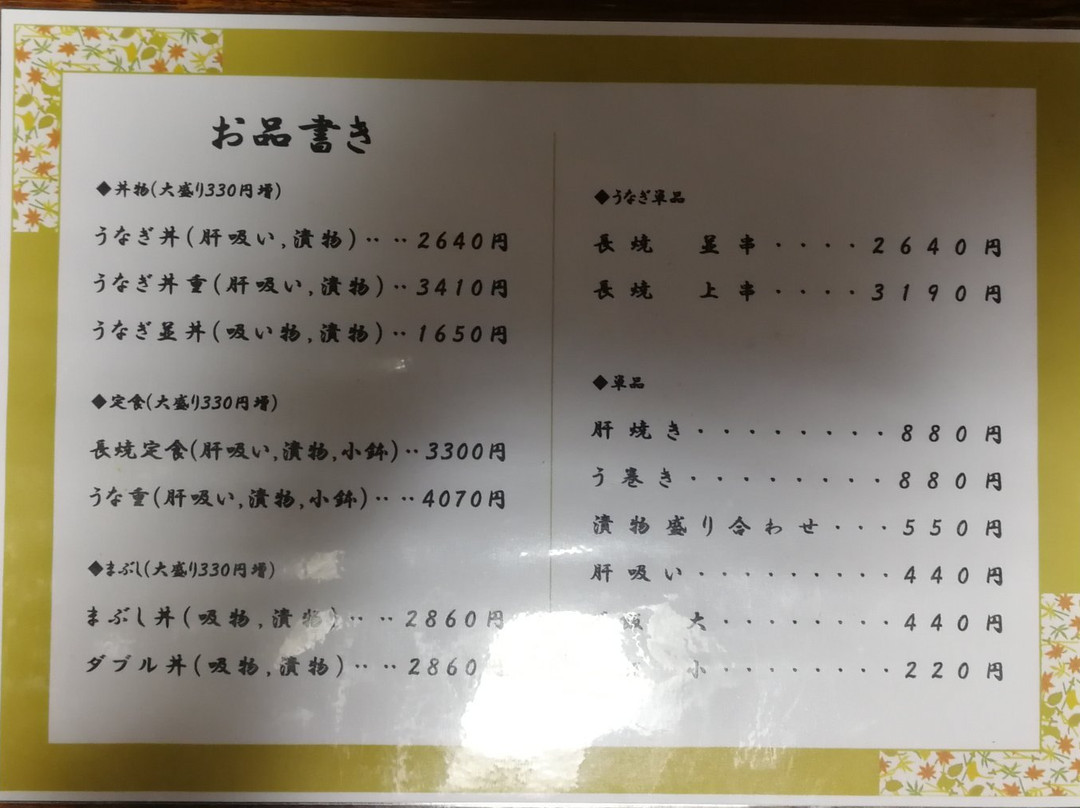 お品書き
◆丼物(大盛り330円増)
うなぎ丼(肝吸い,漬物)‥‥2640円
うなぎ丼重(肝吸い,漬物)‥3410円
うなぎ並丼(吸い物,漬物)‥1650円
◆定食(大盛り330円増)
長焼定食(肝吸い,漬物,小鉢)‥3300円
うな重(肝吸い,漬物,小鉢)‥‥4070円
◆まぶし(大盛り330円増)
まぶし丼(吸物,漬物)‥‥2860円
ダブル丼(吸物,漬物)‥‥2860
◆うなぎ単品
長焼 並串・・・・2640円
長焼 上串・・・・3190円
◆単品
肝焼き・・・・・・・・880円
う巻き・・・・・・・・880円
漬物盛り合わせ・・・550円
肝吸い・・・・・・・・・440円
飯 大・・・・・・・・440円
小・・・・・・・・・220円